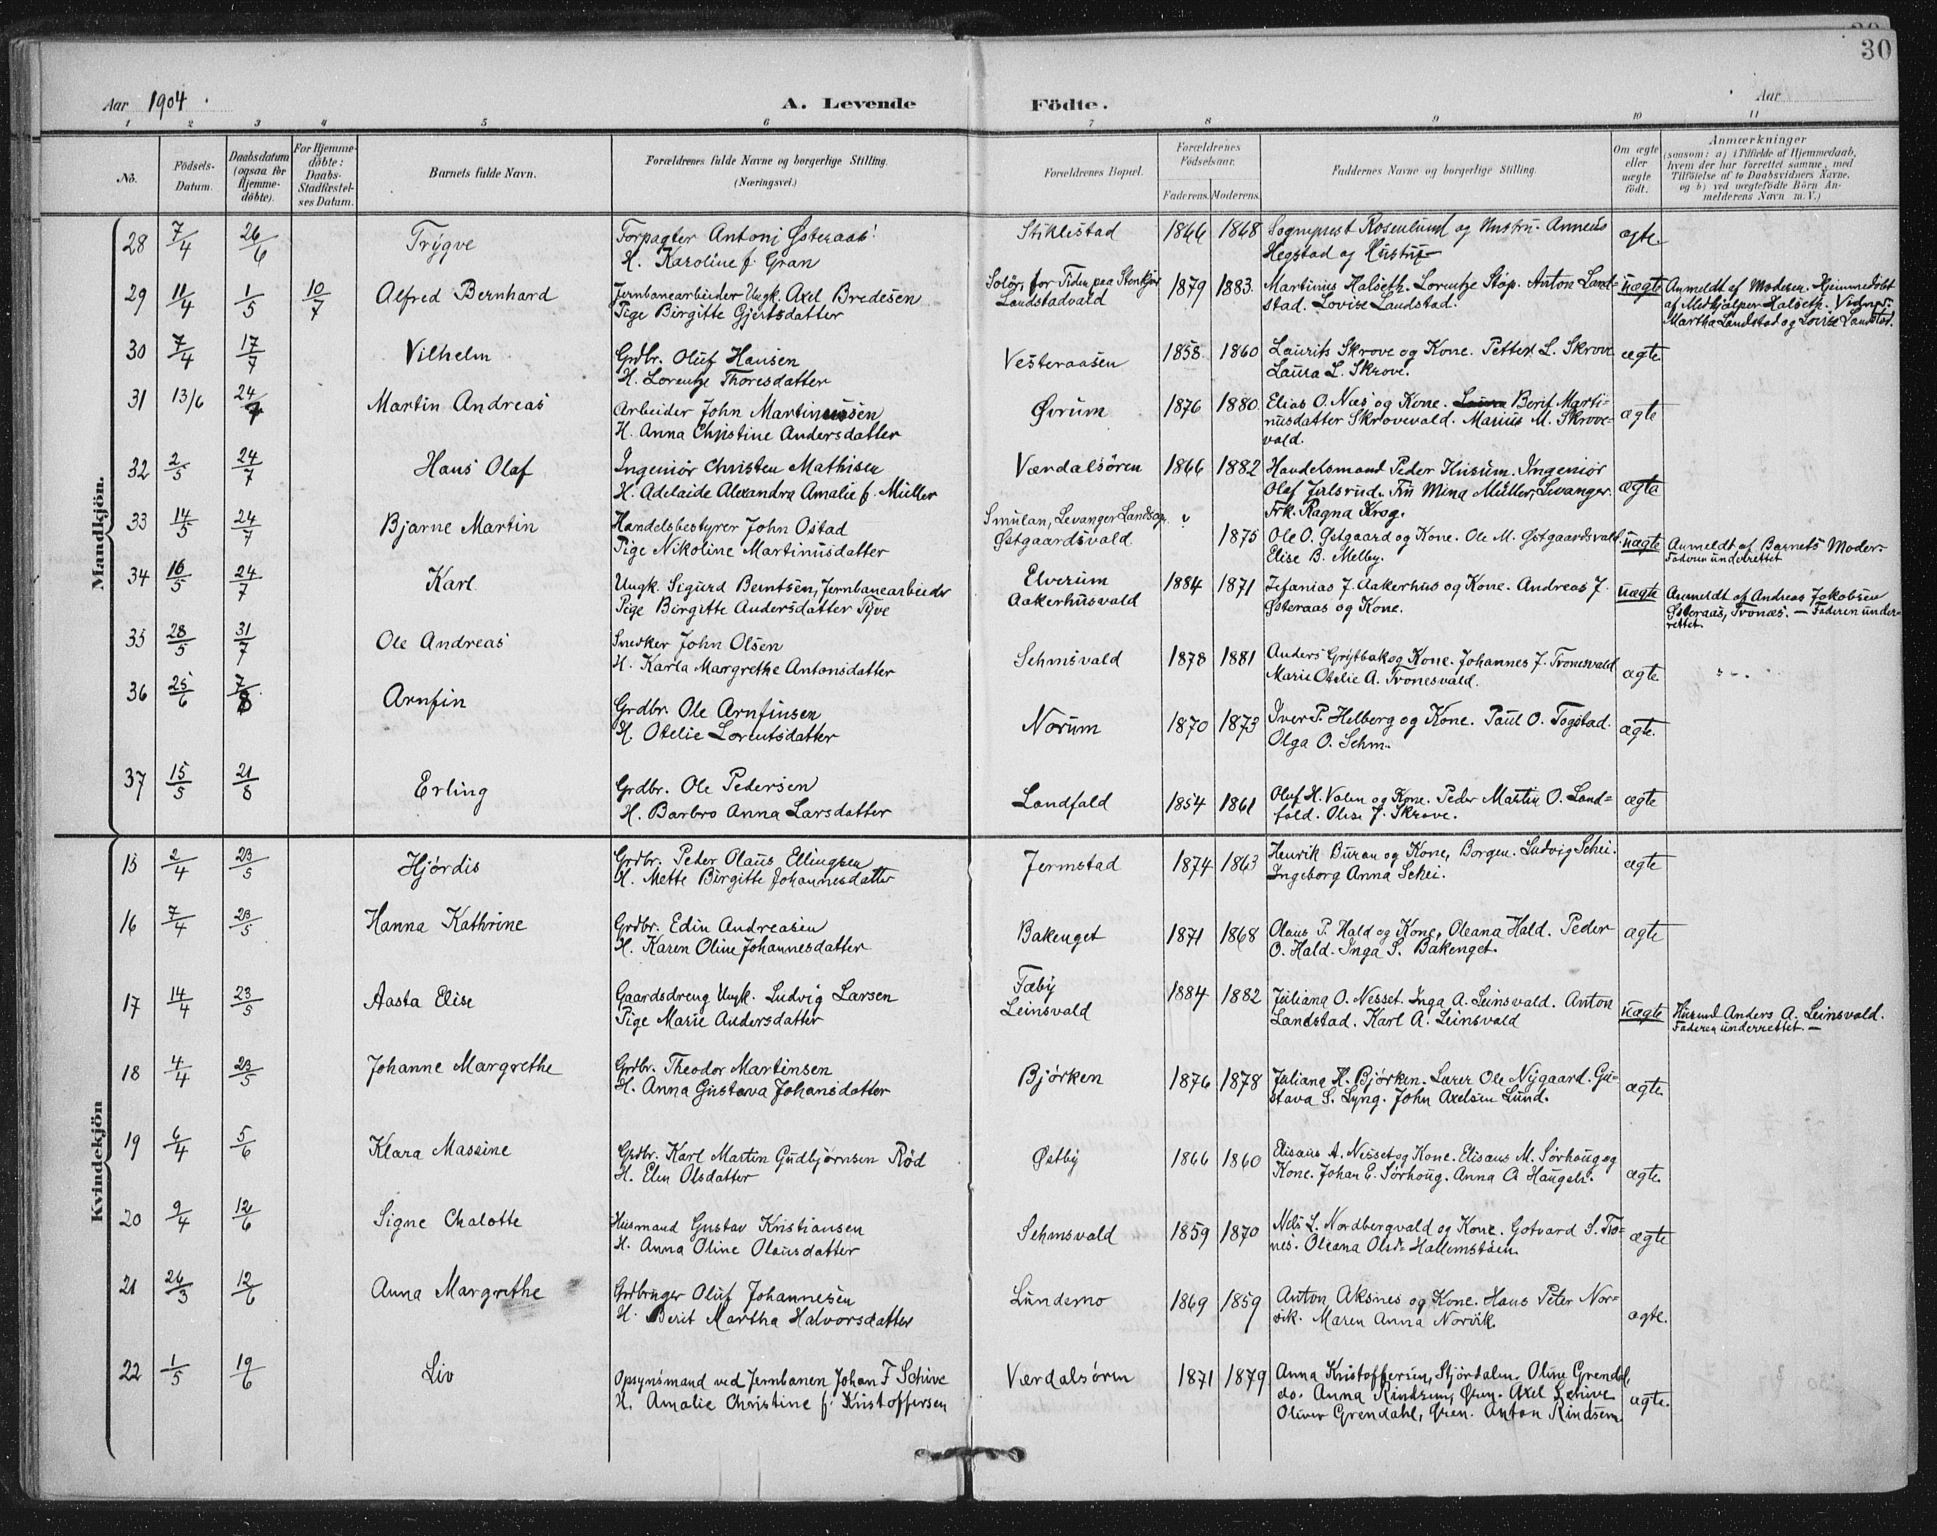 30
Aar 1904. A. Levende Födte. Aar
1 2 3 4 5 6 7 8 9 10 11
No. Födsels-Datum. Daabsdatum (ogsaa for Hjemmedöbte). For Hjemmedöbte: Daabs-Stadfæstelses Datum. Barnets fulde Navn. Forældrenes fulde Navne og borgerlige Stilling. (Næringsvei.) Forældrenes Bopæl. Forældrenes Födselsaar. Faderens. Moderens. Faddernes Navne og borgerlige Stilling. Om ægte eller uægte födt. Anmærkninger (saasom: a) i Tilfælde af Hjemmedaab, hvem der har forrettet samme, med Tilföielse af to Daabsvidners Navne, og b) ved uægtefödte Börn Anmelderens Navn m. V.)
Mandkjön.
28 7/4 26/6 Trygve Forpagter Antoni Østeraas Stiklestad 1866 1868 Sogneprest Rosenlund og Hustru. Anneus ægte.
H. Karoline f. Gran Hegstad og Hustru
29 11/4 1/5 10/7 Alfred Bernhard Jernbanearbeider Ungk. Axel Bredesen Solör, for Tiden paa Stenkjær 1879 1883. Martinus Halseth. Lorentze Stöp. Anton Land- uægte Anmeldt af Moderen. Hjemmedöbt
Pige Birgitte Gjertsdatter Landstadvald stad. Lovise Landstad. af Medhjælper Halseth. Vidner:
Martha Landstad og Lovise Landstad.
30 7/4 17/7 Vilhelm Grdbr. Oluf Hansen Vesteraasen 1858 1860 Laurits Skrove og Kone. Petter L. Skrove ægte
H. Lorentze Thoresdatter Laura L. Skrove.
31 13/6 24/7 Martin Andreas Arbeider John Martinussen Øvrum 1876 1880. Elias O. Næs og Kone. Laura Berit Marti- ægte
H. Anna Christine Andersdatter nusdatter Skrovevald. Marius M. Skrove-
vald.
32 2/5 24/7 Hans Olaf Ingeniör Christen Mathisen Værdalsören 1866 1882 Handelsmand Peder Husum. Ingeniör ægte
H. Adelaide Alexandra Amalie f. Müller Olaf Jerlsrud. Fru Mina Müller, Levanger.
Frk. Ragna Krog.
33 14/5 24/7 Bjarne Martin Handelsbestyrer John Ostad Smulan, Levanger Landsogn ? 1875 Ole O. Østgaard og Kone. Ole M. Østgaardsvald uægte Anmeldt af Barnets Moder.
Pige Nikoline Martinusdatter Østgaardsvald Elise B. Melby. Faderen underrettet
34 16/5 24/7 Karl Ungk. Sigurd Berntsen, Jernbanearbeider Elverum 1884 1871 Zefanias J. Aakerhus og Kone. Andreas J. uægte Anmeldt af Andreas Jakobsen
Pige Birgitte Andersdatter Tyve Aakerhusvald Østeraas og Kone. Østeraas, Tronæs. — Faderen under-
rettet.
35 28/5 31/7 Ole Andreas Snedker John Olsen Sehmsvald 1878 1881 Anders Gristbak og Kone. Johannes J. Tronesvald ægte
H. Karla Margrethe Antonsdatter Marie Otelie A. Tronesvald.
36 25/6 7/8 Arnfin Grdbr. Ole Arnfinsen Norum 1870 1873 Iver P. Helberg og Kone. Paul O. Togstad. ægte.
H. Otelie Lorentsdatter Olga O. Sehm.
37 15/5 21/8 Erling Grdbr. Ole Pedersen Landfald 1854 1861 Oluf H. Valen og Kone. Peder Martin O. Land- ægte
H. Barbro Anna Larsdatter fald. Olise J. Skrove.
Kvindekjön
15 2/4 23/5 Hjördis Grdbr. Peder Olaus Ellingsen Jermstad 1874 1863 Henrik Buran og Kone, Borgen. Ludvig Schei. ægte
H. Mette Birgitte Johannesdatter Ingeborg Anna Schei.
16 7/4 23/5 Hanna Kathrine Grdbr. Edin Andreasen Bakenget 1871 1868 Olaus P. Hald og Kone, Oleana Hald. Peder ægte
H. Karen Oline Johannesdatter O. Hald. Inga S. Bakenget.
17 14/4 23/5 Aasta Elise Gaardsdreng Ungk. Ludvig Larsen Fæby 1884 1882 Juliana O. Nesset. Inga A. Leinsvald. Anton uægte Husmd. Anders A. Leinsvald.
Pige Marie Andersdatter Leinsvald Landstad. Karl A. Leinsvald Faderen underrettet. —
18 4/4 23/5 Johanne Margrethe Grdbr. Theodor Martinsen Bjørken 1876 1878 Juliana H. Bjørken. Lærer Ole Nygaard. Gu- ægte.
H. Anna Gustava Johansdatter stava S. Lyng. John Axelsen Lund.
19 6/4 5/6 Klara Massine Grdbr. Karl Martin Gudbjørnsen Röd Østby 1866 1860 Elisæus A. Nesset og Kone. Elisæus M. Sørhoug og ægte.
H. Elen Olsdatter Kone. Johan E. Sørhoug. Anna O. Haugels.
20 9/4 12/6 Signe Chalotte Husmand Gustav Kristiansen Sehmsvald 1859 1870 Nils L. Nordbergvald og Kone. Gotvard S. Tro- ægte
H. Anna Oline Olausdatter nes. Oleana Olsdr Hallemstöen.
21 26/3 12/6 Anna Margrethe Grdbruger Oluf Johannesen Lundemo 1869 1859 Anton Aksnes og Kone. Hans Peter Nor- ægte.
H. Berit Martha Halvorsdatter vik. Maren Anna Norvik.
22 1/5 19/6 Liv Opsynsmand ved Jernbanen Johan F Schive Værdalsören 1871 1879 Anna Kristoffersen, Stjördalen. Oline Grendal, ægte.
H. Amalie Christine f. Kristoffersen do. Anna Rindsem, Øren. Axel Schive
Oliver Grendahl, Øren. Anton Rindsem